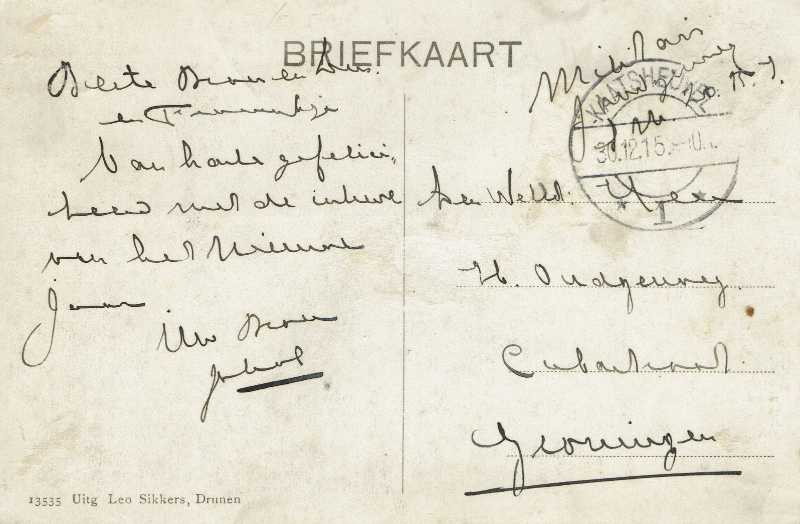 BRIEFKAART
Beste Broer en Zus.
en
Van harte gefelici-
teerd met de intrede
van het Nieuwe
Jaar
Uw Broer
Militair
WAATSHEUVEL
30.12.15.
1
den Weled. Heer
H. Oudgenoeg.
Cubastraat
Groningen
13535 Uitg Leo Sikkers, Drunen